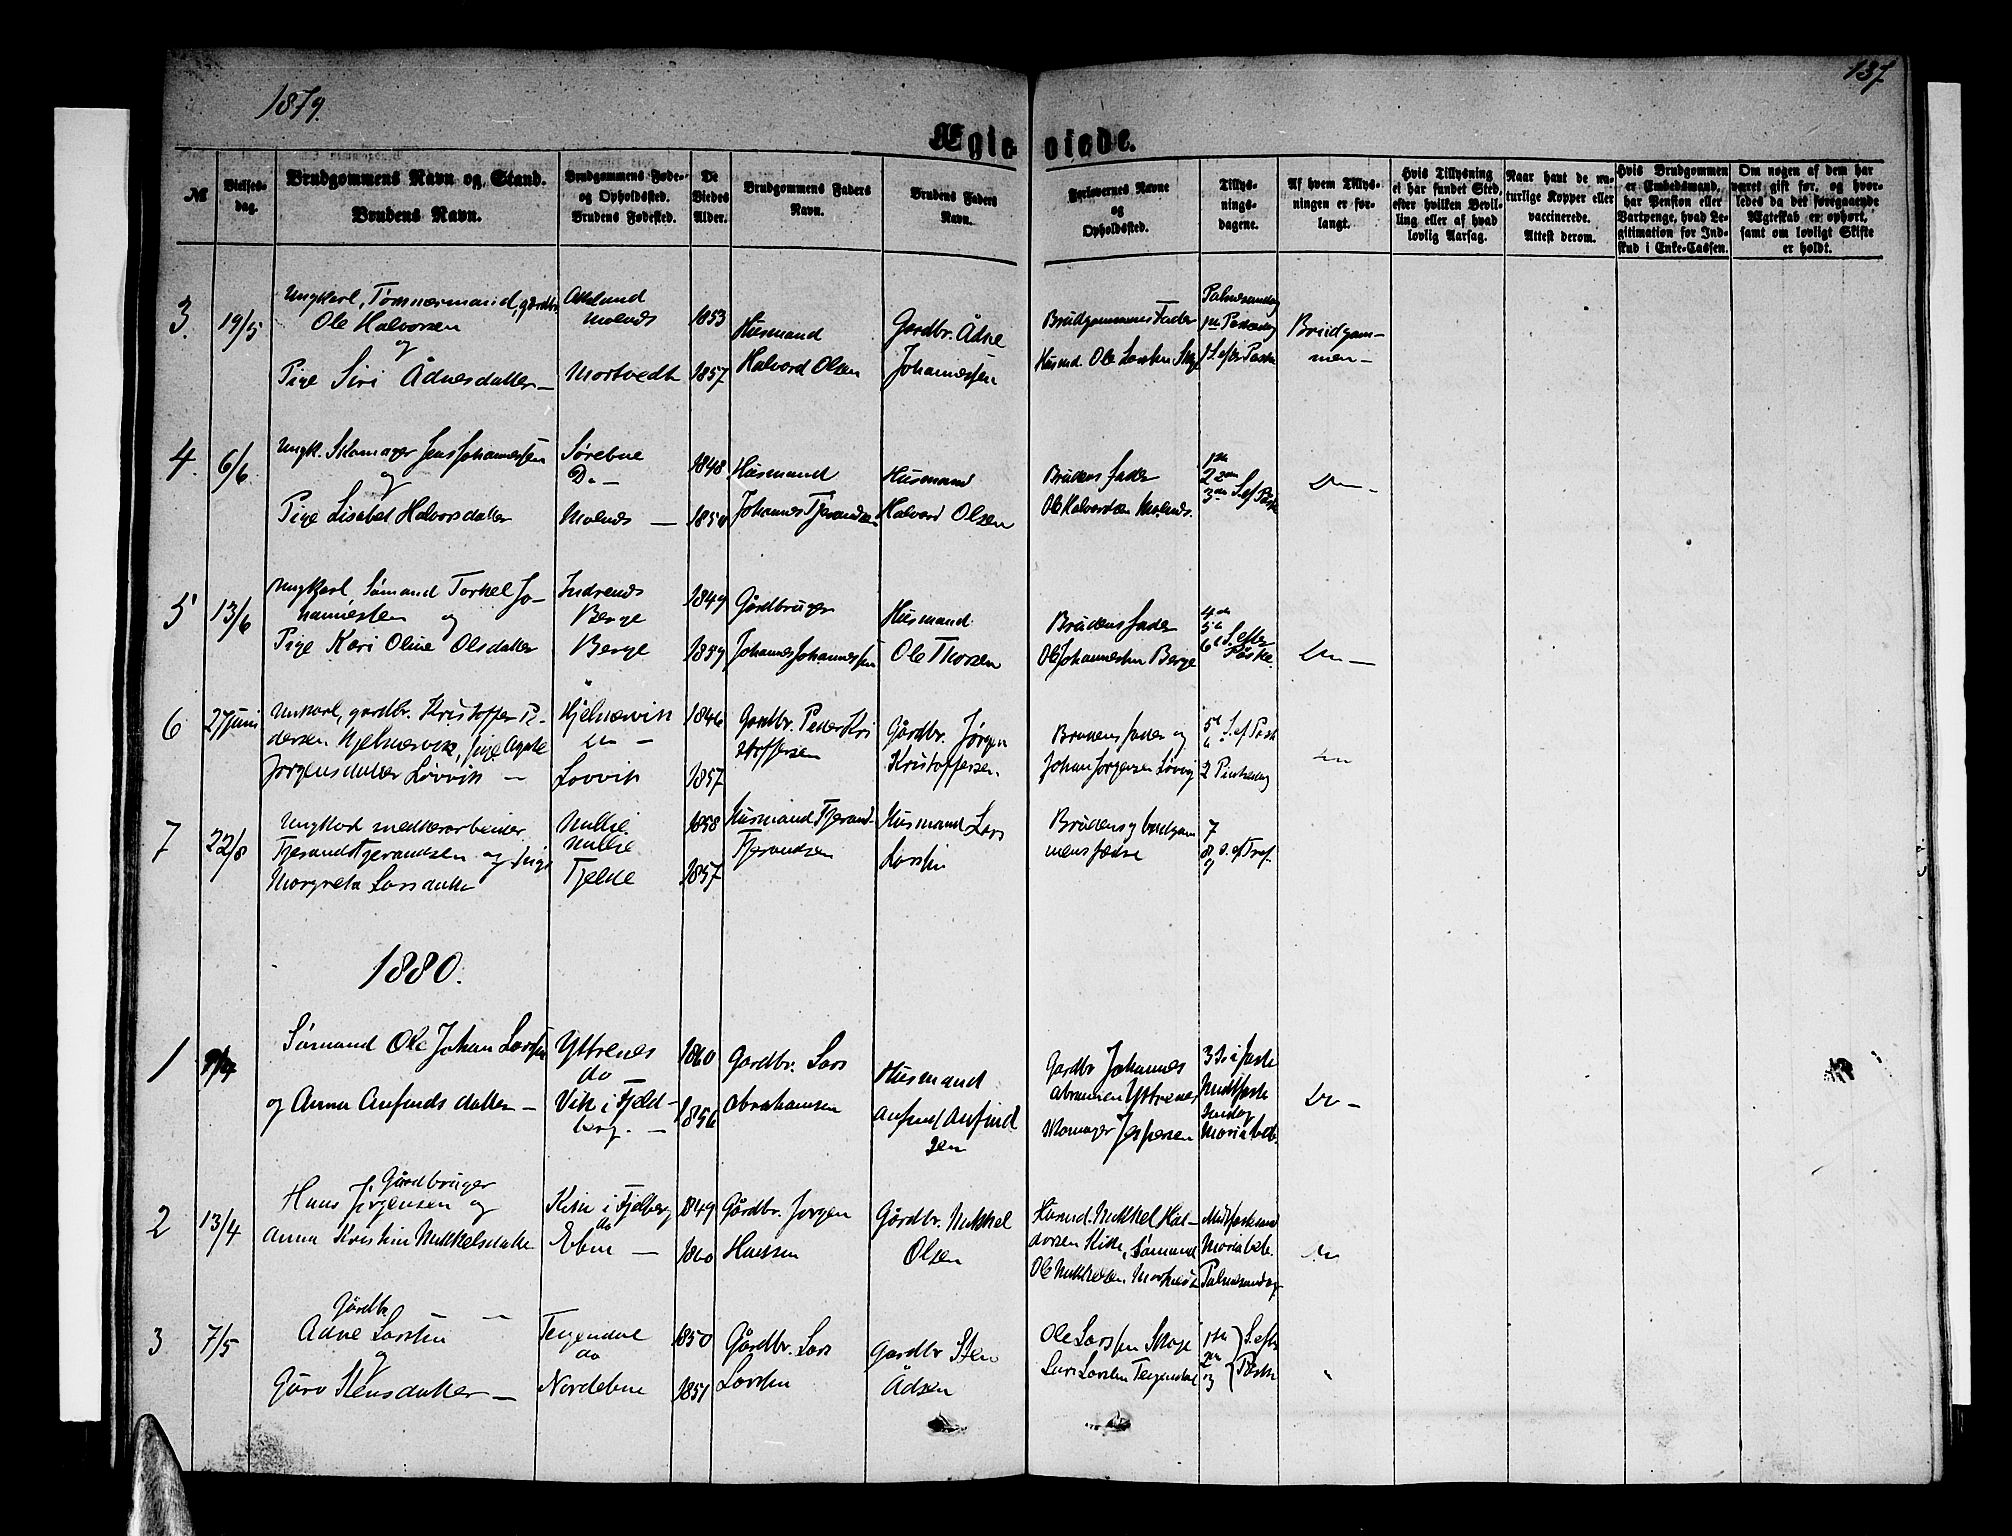 1879.
137
Ægteviede.
№
Vielses-
dag.
Brudgommens Navn og Stand.
Brudens Navn.
Brudgommens Føde-
og Opholdssted.
Brudens Fødested.
De
Viedes
Alder.
Brudgommens Faders
Navn.
Brudens Faders
Navn.
Forlovernes Navne
og
Opholdssted.
Tillys-
nings-
dagene.
Af hvem Tillys-
ningen er for-
langt.
Hvis Tillysning
ei har fundet Sted,
efter hvilken Bevil-
ling eller af hvad
lovlig Aarsag.
Naar havt de na-
turlige Kopper eller
vaccinerede.
Attest derom.
Hvis Brudgommen
er Embedsmand,
har Pension eller
Vartpenge, hvad Le-
gitimation for Ind-
skud i Enke-Cassen.
Om nogen af dem har
været gift før, og hvor-
ledes da det foregaaende
Ægteskab er ophørt,
samt om lovligt Skifte
er holdt.
3.
19/5
Ungkarl, Tømmermand, gardbr.
Ole Halvorsen
og
Pige Siri Ådnesdatter
Molnes
Mortvedt
1853
1857
Husmand
Halvord Olsen
Gardbr. Ådne
Johannessen
Brudgommens Fader
Husmd. Ole Larssen
Palmesondag
1ste Paaskedag
1 S. efter Paaske
Brudgom-
men
4.
6/6
Ungk. Skomager Jens Johannessen
og
Pige Lisabet Halvorsdatter
Sørebøe
Do
Molnes
1848
1850
Husmand
Johannes Fjerandsen
Husmand
Halvord Olsen
Brudens fader
Ole Halvordsen Molnes.
1ste
2den
3die S. ef. Paaske
Do
5
13/6
Ungkarl, Sømand Torkel Jo-
hannessen og
Pige Kari Oline Olsdatter
Indrenes
Berge
Berge
1849
1859
Gårdbruger
Johannes Johannessen
Husmand
Ole Thorsen
Brudens fader
Ole Johannessen Berge
4de
5te
6te S. efter
Påske.
Do
6
27 Juni
Unkarl, gardbr. Kristoffer Pe-
dersen Hjelnesvik, Pige Agate
Jørgensdatter Løvvik
Hjelnesvik
Do
Lovvik
1846
1857
Gardbr. Peder Kri
stoffersen
Gårdbr. Jørgen
Kristoffersen.
Brudens fader og
Johan Jørgensen Løvvig
5te S. ef Paask
6
2 Pintsedag
Do
7
22/8
Ungkarl
Fjerand Fjerandsen og Pige
Margreta Larsdatter
Fjelde
1858
1857
Husmand Fjerand
Fjerandsen
Husmand Lars
Larssen
Brudens og brudgom
mens fædre
7
8 S. ef Tref.
9
1880.
1
Sømand Ole Johan Larssen
og Anna Anfindsdatter
Yttrenes
do
Vik i Fjeld-
berg.
1860
1856
Gardbr. Lars
Abrahamsen
Husmand
Anfind Anfind
sen
Gardbr Johannes
Abramsen Yttrenes
Skomager Jespersen
3 S. i faste
Midtfaste
sondag
Maria beb.
Do
2
13/4
Gårdbruger
Hans Jørgensen og
Anna Kristine Mikkelsdatter
i Fjelberg
do
Ebne
1849
1860
Gårdbr. Jorgen
Hanssen
Gårdbr. Mikkel
Olsen
Husmd. Mikkel Hal-
dorsen, Sømand
Ole Mikkelsen
Midtfastesond
Maria beb.
Palmesondag
Do
3
7/5
Gårdbr
Adne Larssen
og
Guro Stensdatter
Teigendal
do
Nordebøe
1850
1851
Gårdbr. Lars
Larssen
Gardbr Sten
Ådsen
Ole Larssen Skoge
Lars Larssen Teigendal
1ste
2den
og 3
S. efter
Påske